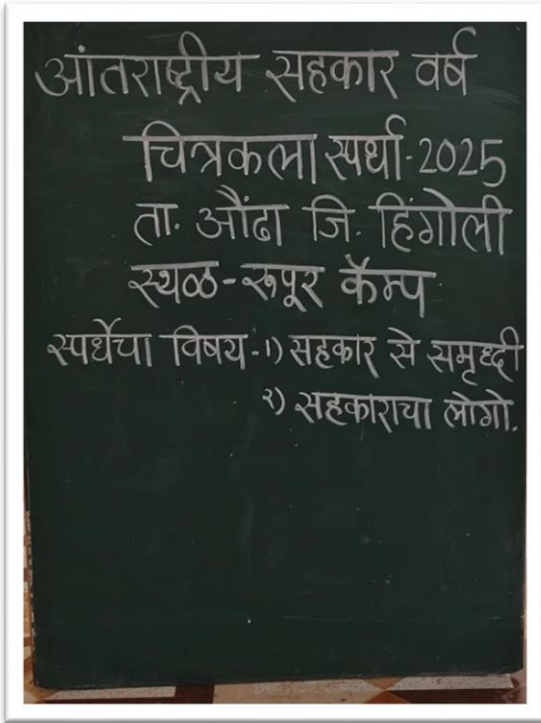 आंतराष्ट्रीय सहकार वर्ष
चित्रकला स्पर्धा-2025
ता. औंढा जि. हिंगोली
स्थळ-रुपूर कॅम्प
स्पर्धेचा विषय-१) सहकार से समृध्दी
२) सहकाराचा लोगो.